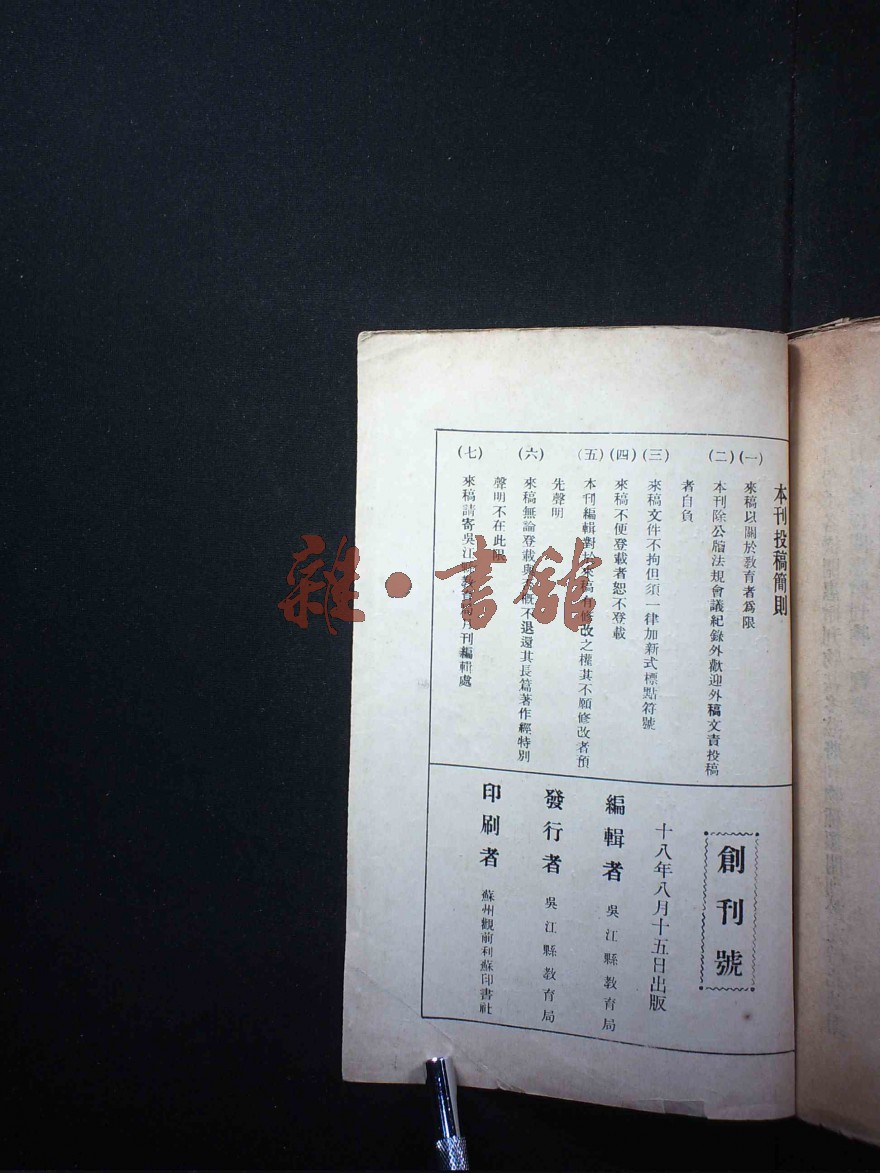 本刊投稿簡則
(一) 來稿以關於敎育者爲限
(二) 本刊除公牘法規會議紀錄外歡迎外稿文責投稿
者自負
(三) 來稿文件不拘但須一律加新式標點符號
(四) 來稿不便登載者恕不登載
(五) 本刊編輯對於來稿有修改之權其不願修改者預
先聲明
(六) 來稿無論登載與 槪不退還其長篇著作經特別
聲明不在此限
(七) 來稿請寄吳江 敎 局月刊編輯處
創刊號
十八年八月十五日出版
編輯者 吳江縣敎育局
發行者 吳江縣敎育局
印刷者 蘇州觀前利蘇印書社
雜·書館